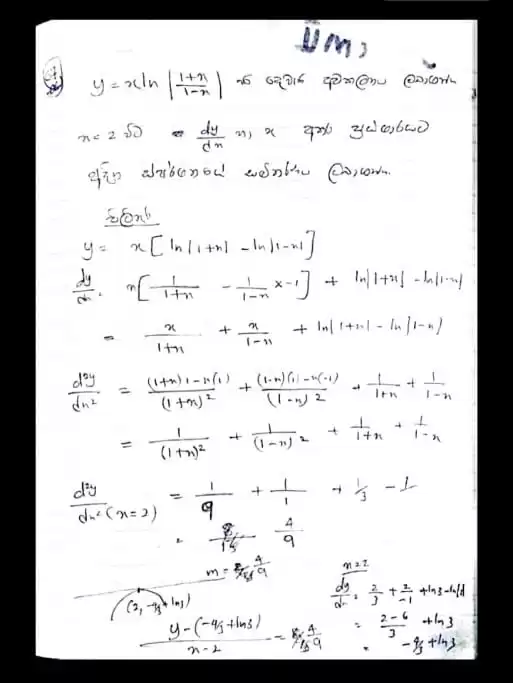 y = x ln |1+x / 1-x| හි දෙවන අවකලනය ලබාගන්න
x = 2 විට dy/dx හා x අතර ප්‍රස්ථාරයට
සමීකරණය ලබාගන්න.
y = x[ln|1+x| - ln|1-x|]
dy/dx = x[1/(1+x) - 1/(1-x) × -1] + ln|1+x| - ln|1-x|
= x/(1+x) + x/(1-x) + ln|1+x| - ln|1-x|
d²y/dx² = ((1+x)1 - x(1))/(1+x)² + ((1-x)(1) - x(-1))/(1-x)² + 1/(1+x) + 1/(1-x)
= 1/(1+x)² + 1/(1-x)² + 1/(1+x) + 1/(1-x)
d²y/dx² (x=2) = 1/9 + 1/1 + 1/3 - 1
= 4/9
m = 4/9
(2, -4/3 + ln3)
(y - (-4/3 + ln3))/(x-2) = 4/9
x=2
dy/dx = 2/3 + 2/-1 + ln3 - ln1
= (2-6)/3 + ln3
= -4/3 + ln3